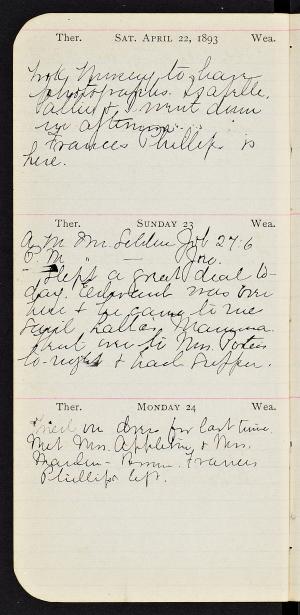 Ther. SAT. APRIL 22, 1893 Wea.
to have
photographs. Isabelle,
Allie & I went down
in afternoon.
Frances Phillips is
here.
Ther. SUNDAY 23 Wea.
A.M. Mr. Selden Job 27:6
P.M. " — Jno.
— Slept a great deal to-
day. Edward was over
here & he came to me
Mamma
went over to Mrs.
to-night & had supper.
Ther. MONDAY 24 Wea.
Tried on dress for last time.
Met Mrs. Appleton & Mrs.
Frances
Phillips left.